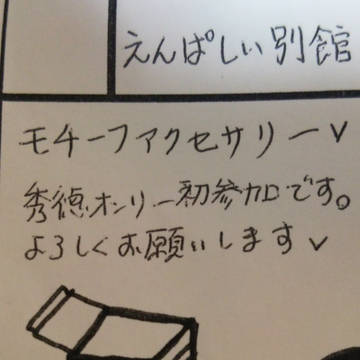 えんぱしぃ別館
モチーフアクセサリー✓
秀徳オンリー初参加です。
よろしくお願いします✓